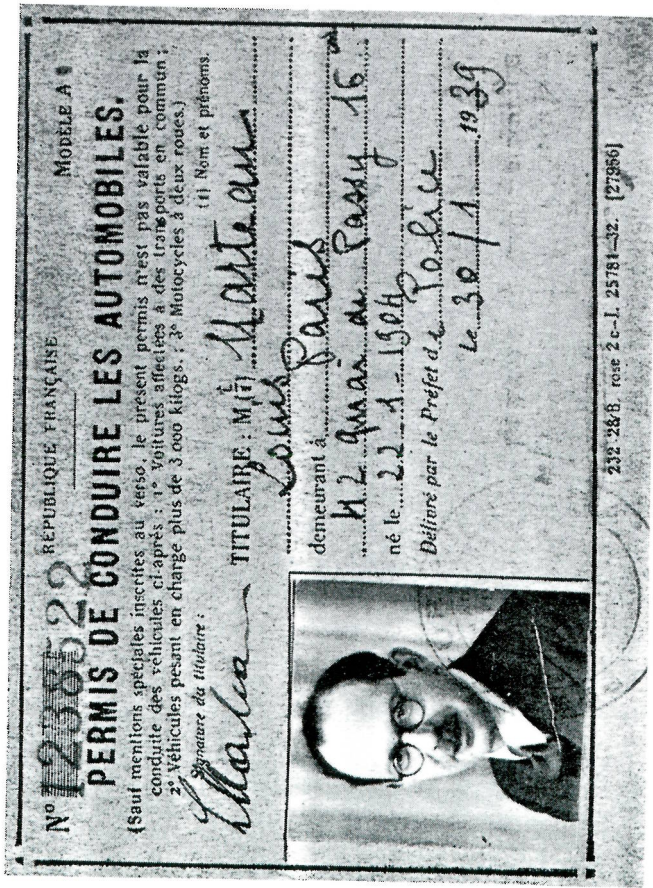 N° 1238522 RÉPUBLIQUE FRANÇAISE MODÈLE A
PERMIS DE CONDUIRE LES AUTOMOBILES.
(Sauf mentions spéciales inscrites au verso, le présent permis n'est pas valable pour la
conduite des véhicules ci-après : 1° Voitures affectées à des transports en commun ;
2° Véhicules pesant en charge plus de 3 000 kilogs. ; 3° Motocycles à deux roues.)
(1) Nom et prénoms.
Signature du titulaire :
TITULAIRE : M. (1) Marteau
Louis
demeurant à Paris
42 quai de Passy 16
né le 22-1-1904
Délivré par le Préfet de Police
Le 30/1 1939
232 28/B. rose 2 c-J. 25781-32. [27956]